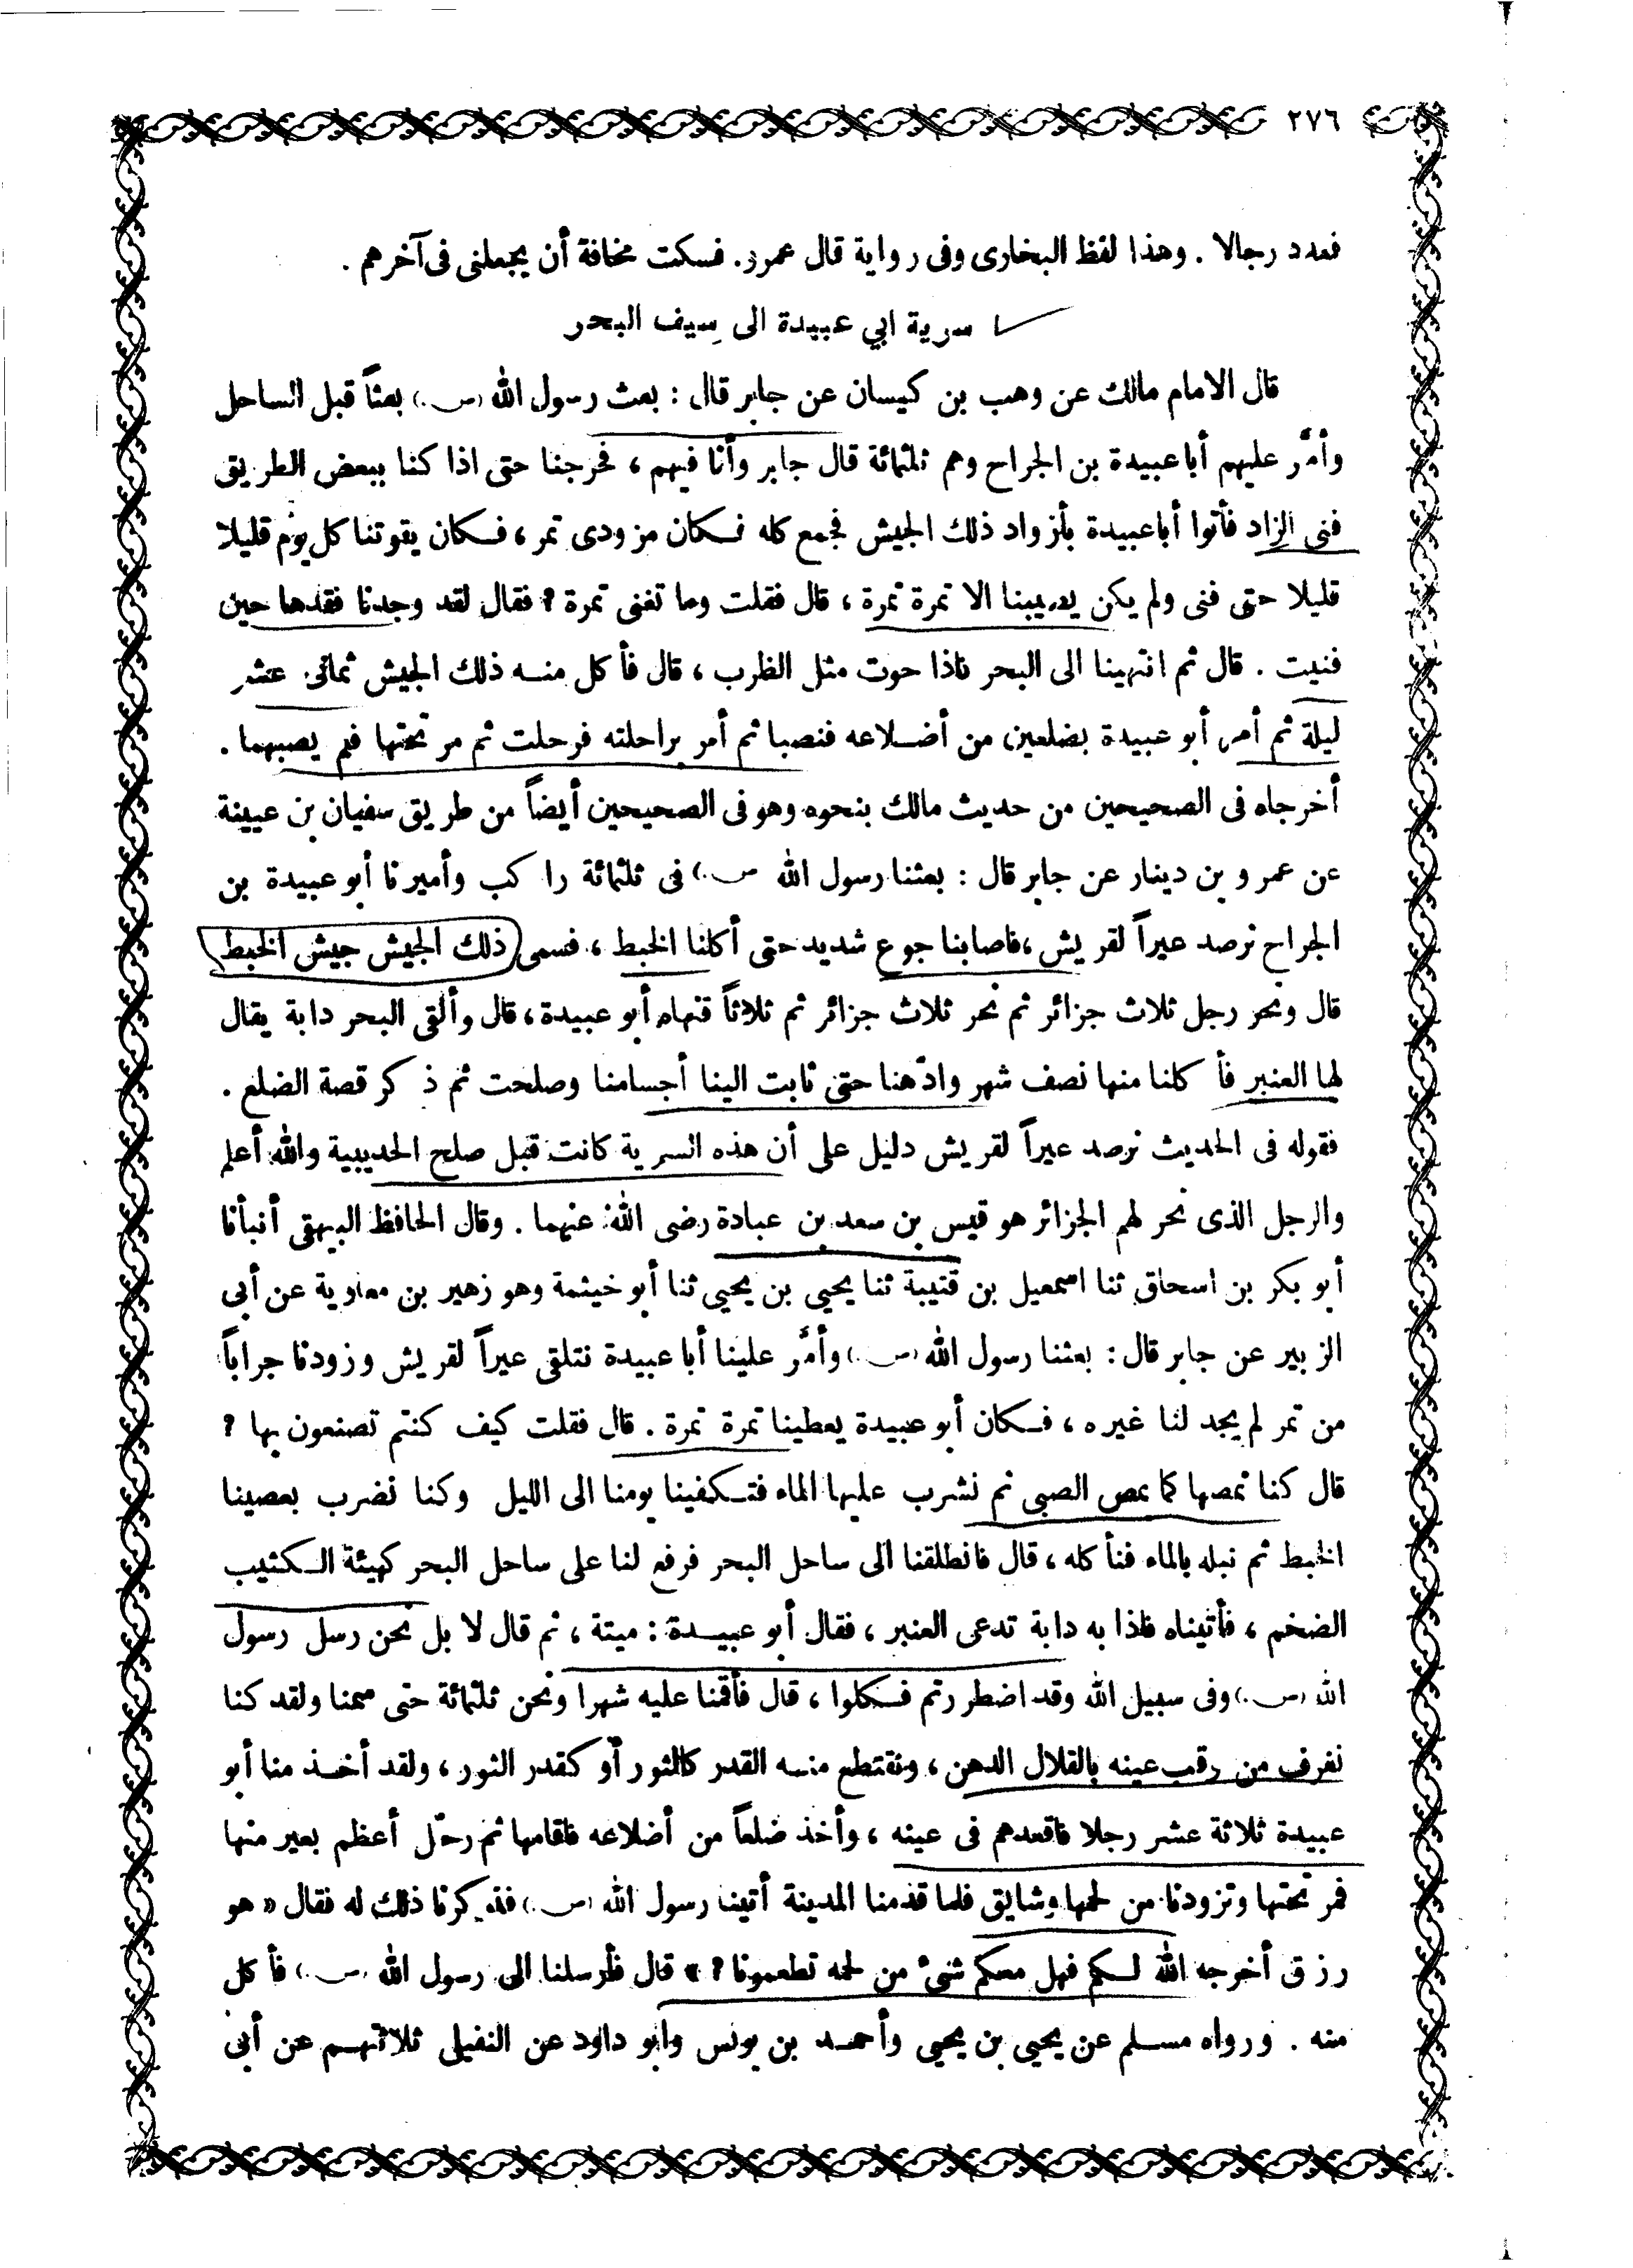 ٢٧٦
فعدد رجالا . وهذا لفظ البخارى وفى رواية قال عمرو. فسكت مخافة أن يجعلنى فى آخرهم .
سرية ابي عبيدة الى سِيف البحر
قال الامام مالك عن وهب بن كيسان عن جابر قال : بعث رسول الله (ص.) بعثاً قبل الساحل
وأمَّر عليهم أبا عبيدة بن الجراح وهم ثلثمائة قال جابر وأنا فيهم ، فخرجنا حتى اذا كنا ببعض الطريق
فنى الزاد فأتوا أبا عبيدة بأزواد ذلك الجيش فجمع كله فكان مزودى تمر ، فكان يقوتنا كل يوم قليلا
قليلا حتى فنى ولم يكن يصيبنا الا تمرة تمرة ، قال فقلت وما تغنى تمرة ? فقال لقد وجدنا فقدها حين
فنيت . قال ثم انتهينا الى البحر فاذا حوت مثل الظرب ، قال فأكل منه ذلك الجيش ثمانى عشر
ليلة ثم أمر أبو عبيدة بضلعين من أضلاعه فنصبا ثم أمر براحلته فرحلت ثم مر تحتها فلم يصبهما .
أخرجاه فى الصحيحين من حديث مالك بنحوه وهو فى الصحيحين أيضاً من طريق سفيان بن عيينة
عن عمرو بن دينار عن جابر قال : بعثنا رسول الله ص.) فى ثلثمائة راكب وأميرنا أبو عبيدة بن
الجراح نرصد عيراً لقريش ،فاصابنا جوع شديد حتى أكلنا الخبط ، فسمى ذلك الجيش جيش الخبط
قال ونحر رجل ثلاث جزائر ثم نحر ثلاث جزائر ثم ثلاثاً فنهاه أبو عبيدة ، قال وألقى البحر دابة يقال
لها العنبر فأكلنا منها نصف شهر وادّهنا حتى ثابت الينا أجسامنا وصلحت ثم ذكر قصة الضلع .
فقوله فى الحديث نرصد عيراً لقريش دليل على أن هذه السرية كانت قبل صلح الحديبية والله أعلم
والرجل الذى نحر لهم الجزائر هو قيس بن سعد بن عبادة رضى الله عنهما . وقال الحافظ البيهقى أنبأنا
أبو بكر بن اسحاق ثنا اسمعيل بن قتيبة ثنا يحيى بن يحيى ثنا أبو خيثمة وهو زهير بن معاوية عن أبى
الزبير عن جابر قال : بعثنا رسول الله (ص.) وأمَّر علينا أبا عبيدة نتلقى عيراً لقريش وزودنا جراباً
من تمر لم يجد لنا غيره ، فكان أبو عبيدة يعطينا تمرة تمرة . قال فقلت كيف كنتم تصنعون بها ?
قال كنا نمصها كما يمص الصبى ثم نشرب عليها الماء فتكفينا يومنا الى الليل وكنا نضرب بعصينا
الخبط ثم نبله بالماء فنأكله ، قال فانطلقنا الى ساحل البحر فرفع لنا على ساحل البحر كهيئة الكثيب
الضخم ، فأتيناه فاذا به دابة تدعى العنبر ، فقال أبو عبيدة : ميتة ، ثم قال لا بل نحن رسل رسول
الله (ص.) وفى سبيل الله وقد اضطررتم فكلوا ، قال فأقمنا عليه شهرا ونحن ثلثمائة حتى سمنا ولقد كنا
نغرف من وقب عينه بالقلال الدهن ، ونقتطع منه القدر كالثور أو كقدر الثور ، ولقد أخذ منا أبو
عبيدة ثلاثة عشر رجلا فاقعدهم فى عينه ، وأخذ ضلعاً من أضلاعه فاقامها ثم رحّل أعظم بعير منها
فمر تحتها وتزودنا من لحمها وشايق فلما قدمنا المدينة أتينا رسول الله (ص.) فذكرنا ذلك له فقال « هو
رزق أخرجه الله لكم فهل معكم شىء من لحمه تطعمونا ? » قال فأرسلنا الى رسول الله (ص.) فأكل
منه . ورواه مسلم عن يحيى بن يحيى وأحمد بن يونس وأبو داود عن النفيلى ثلاثتهم عن أبى